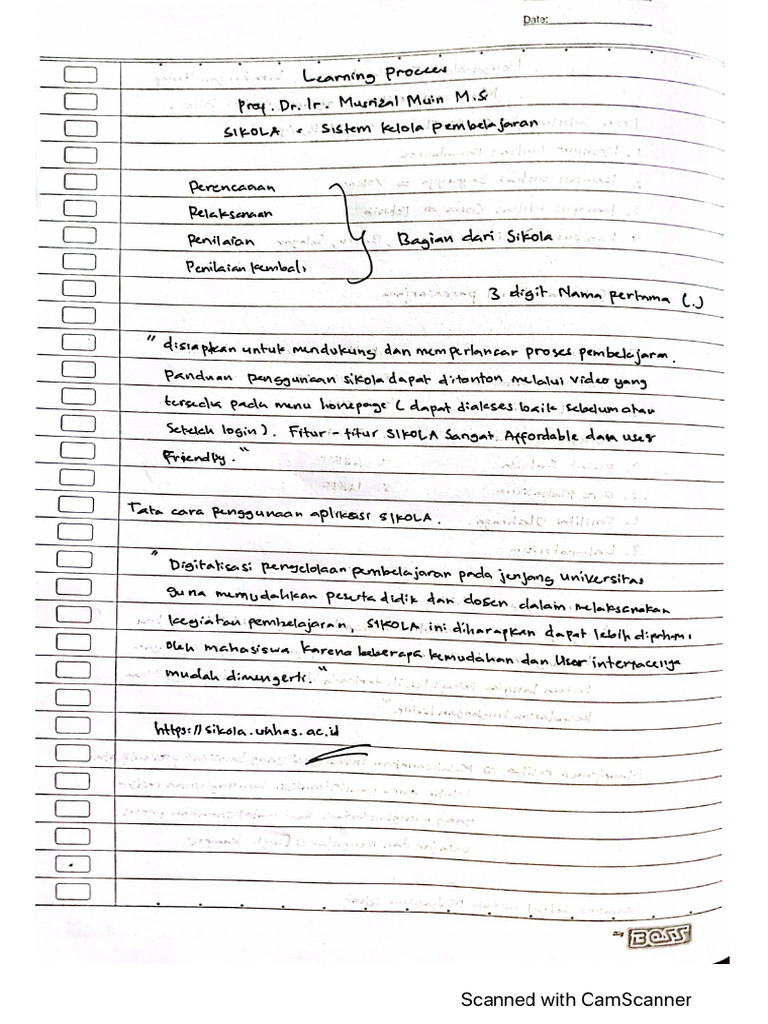 Date:
Learning Process
Prof. Dr. Ir. Musrizal Muin M.Si
SIKOLA = Sistem Kelola Pembelajaran
Perencanaan
Pelaksanaan
Penilaian
Bagian dari Sikola
Penilaian kembali
3 digit Nama pertama (.)
" disiapkan untuk mendukung dan memperlancar proses pembelajaran.
Panduan penggunaan sikola dapat ditonton melalui video yang
tersedia pada menu homepage ( dapat diakses baik sebelum atau
setelah login ). Fitur - fitur SIKOLA sangat Affordable dan user
Friendly. "
Tata cara penggunaan aplikasi SIKOLA.
" Digitalisasi pengelolaan pembelajaran pada jenjang universitas
guna memudahkan peserta didik dan dosen dalam melaksanakan
kegiatan pembelajaran, SIKOLA ini diharapkan dapat lebih dipahami
oleh mahasiswa karena beberapa kemudahan dan User interfacenya
mudah dimengerti. "
https://sikola.unhas.ac.id
by BOSS
Scanned with CamScanner